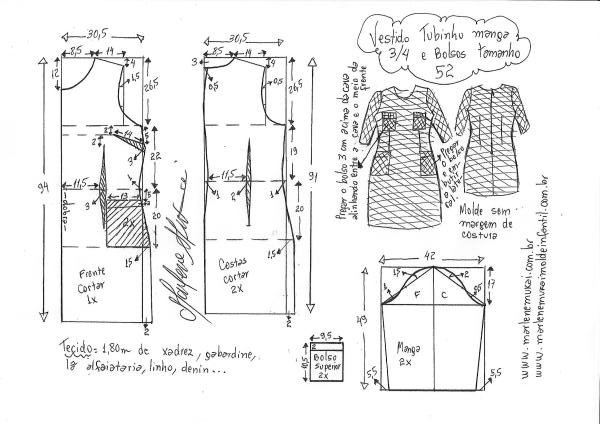 Vestido Tubinho manga
3/4 e Bolsos tamanho
52
30,5
8,5
14
12
4
1,5
26,5
94
2
14
2
5
3
22
11,5
1
13
5
3
3
dobra
2x
20
15
Frente
cortar
1x
20
Marlene Mukai
30,5
8,5
14
3
4
0,5
0,5
26,5
19
91
11,5
2
3
1
20
1,5
Costas
cortar
2x
20
Pregar o bolso 3 cm acima da cava
alinhando entre a cava e o meio da
frente
Pregar
o bolso
Molde sem
margem de
costura
42
1,5
2
17
F
C
49
Manga
2x
5,5
5,5
9,5
2
10,5
Bolso
superior
2x
Tecido = 1,80m de xadrez, gabardine,
lã alfaiataria, linho, denin...
www.marlenemukai.com.br
www.marlenemukaimoldeinfantil.com.br